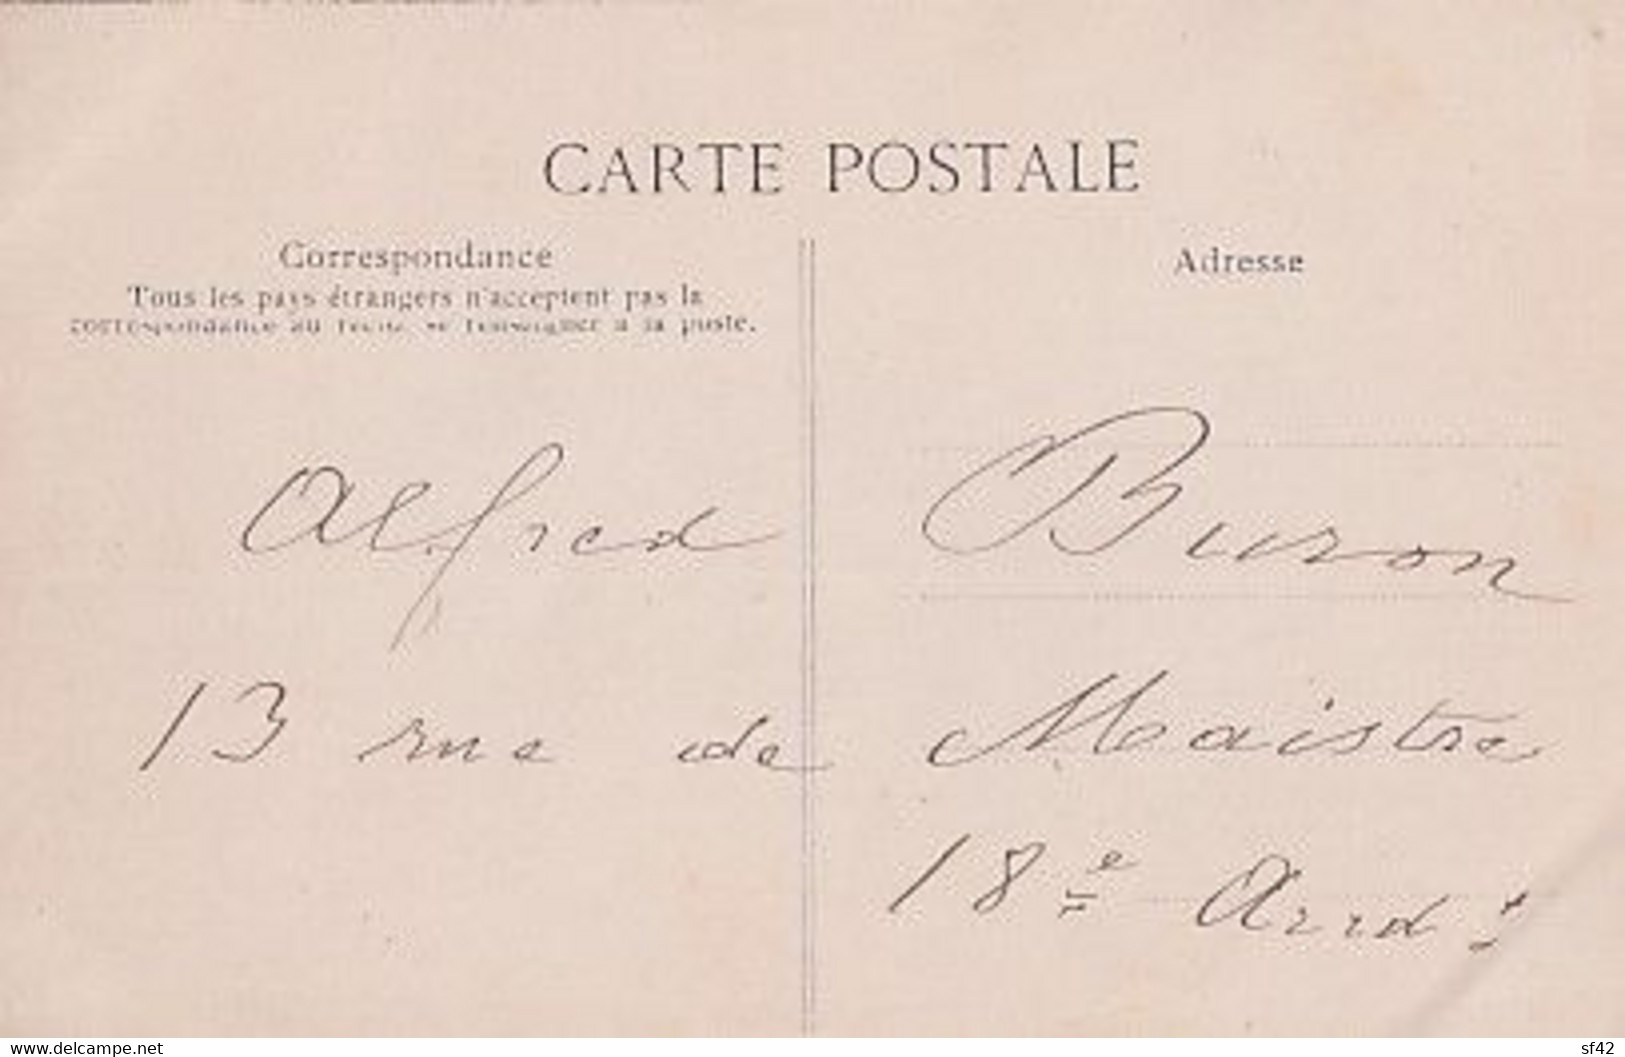 CARTE POSTALE
Correspondance
Tous les pays étrangers n'acceptent pas la
correspondance au recto, se renseigner à la poste.
Adresse
Alfred Buron
13 rue de Maistre
18e Arrdt
www.delcampe.net
sf42